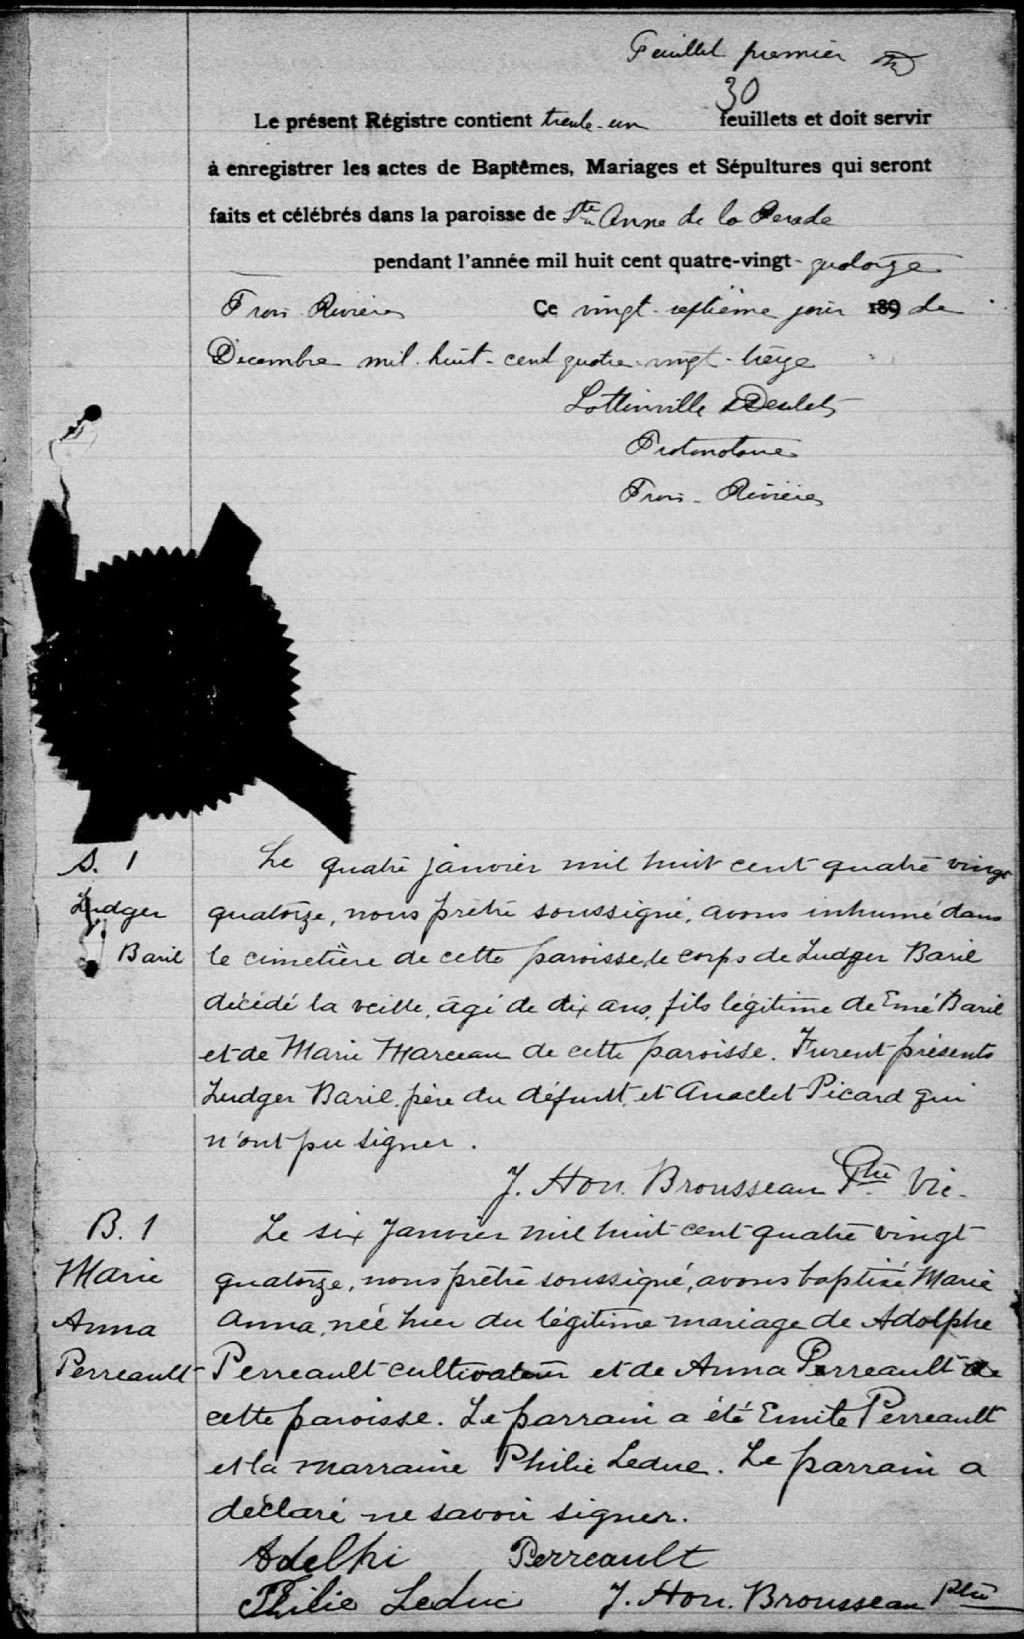 Feuillet premier
30
Le présent Régistre contient trente-un feuillets et doit servir
à enregistrer les actes de Baptêmes, Mariages et Sépultures qui seront
faits et célébrés dans la paroisse de Ste Anne de la Perade
pendant l'année mil huit cent quatre-vingt-quatorze
Trois Rivières Ce vingt-septième jour 189 de
Décembre mil huit-cent quatre-vingt-treize
Lottinville & Desilets
Protonotaire
Trois-Rivières
S. 1
Ludger
Baril
Le quatre janvier mil huit cent quatre vingt
quatorze, nous prêtre soussigné, avons inhumé dans
le cimetière de cette paroisse, le corps de Ludger Baril
décédé la veille, âgé de dix ans, fils légitime de Emé Baril
et de Marie Marceau de cette paroisse. Furent présents
Ludger Baril, père du défunt, et Anaclet Picard qui
n'ont pu signer.
J. Hon. Brousseau Ptre Vic.
B. 1
Marie
Anna
Perreault
Le six Janvier mil huit cent quatre vingt
quatorze, nous prêtre soussigné, avons baptisé Marie
Anna, née hier du légitime mariage de Adolphe
Perreault cultivateur et de Anna Perreault de
cette paroisse. Le parrain a été Emile Perreault
et la marraine Philie Leduc. Le parrain a
déclaré ne savoir signer.
Adelphi Perreault
Philie Leduc J. Hon. Brousseau Ptre